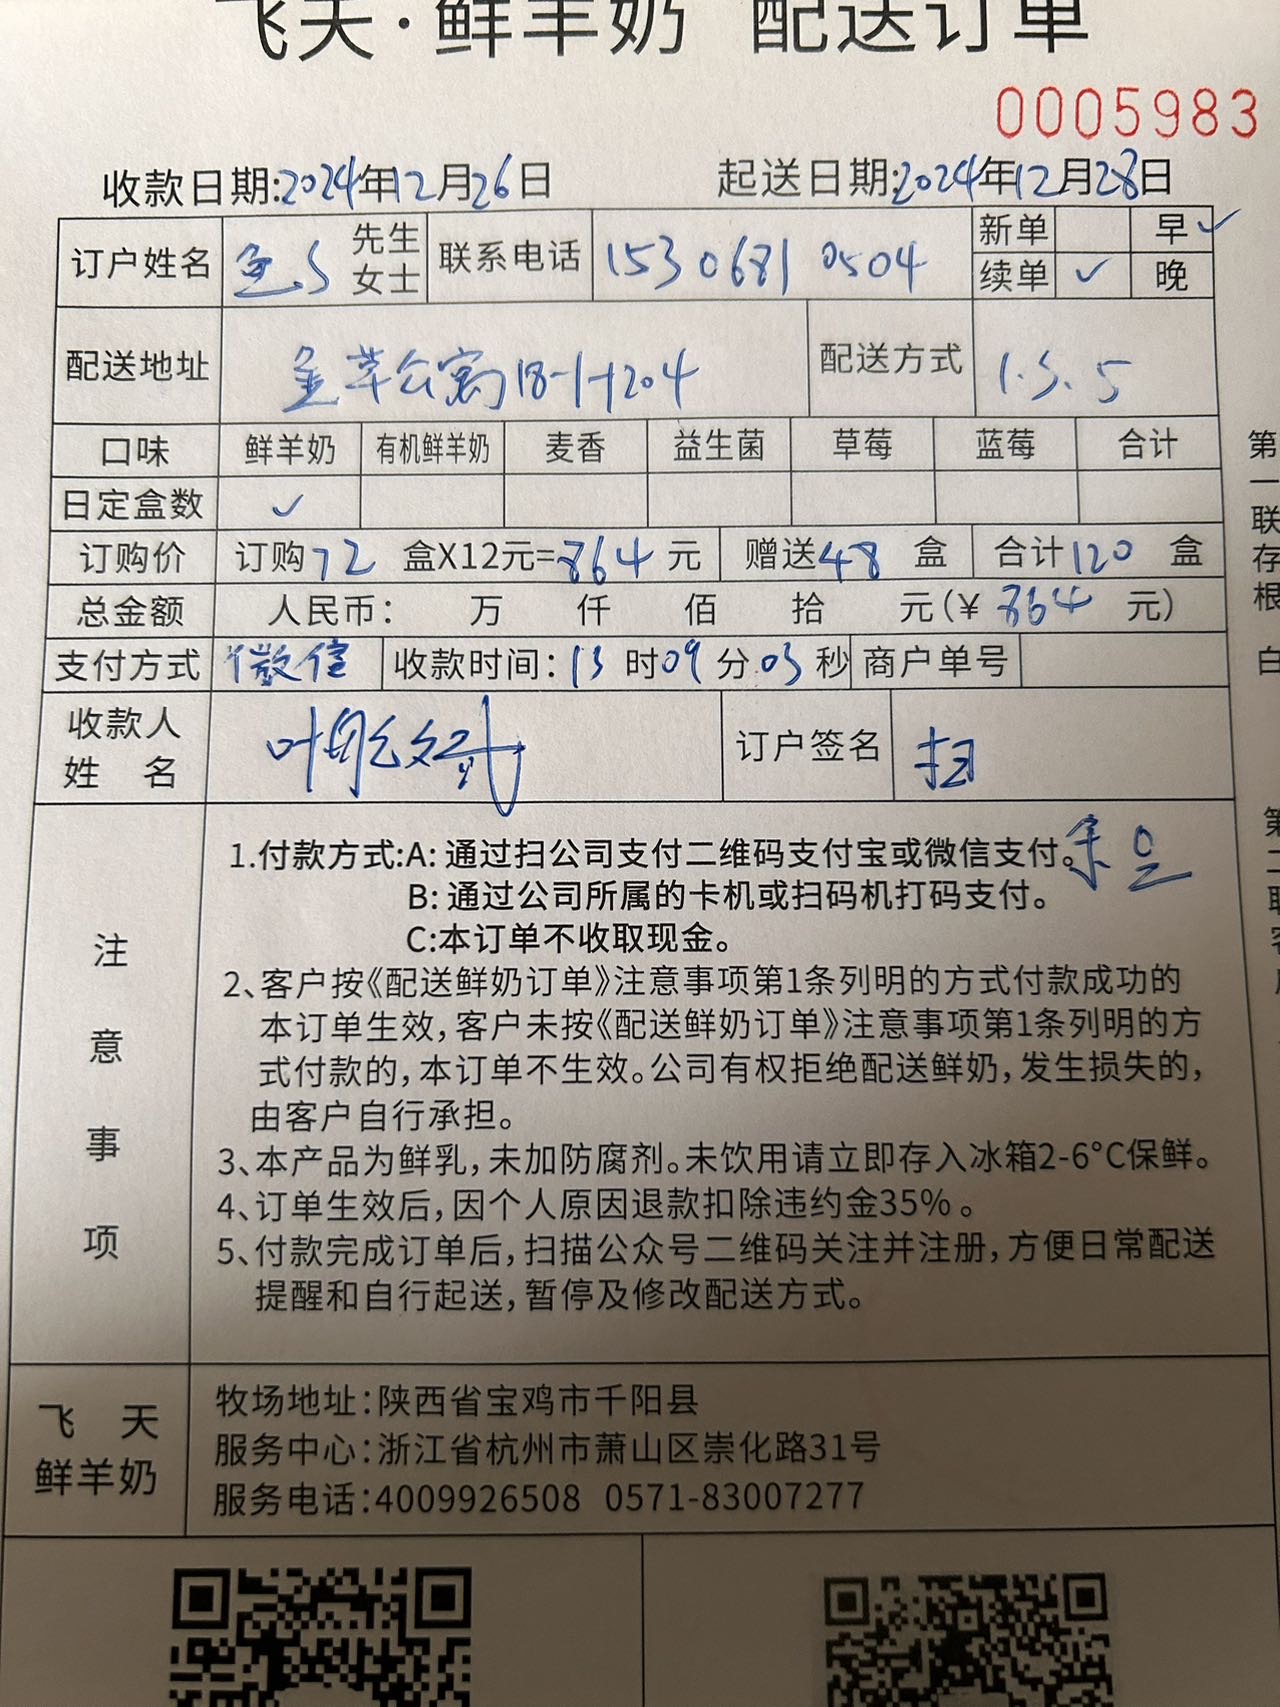 飞天·鲜羊奶 配送订单
0005983
收款日期:2024年12月26日 起送日期:2024年12月28日
订户姓名 先生 女士 联系电话 15306810504 新单 早✓
续单 ✓ 晚
配送地址 金苹公寓18-1-1204 配送方式 1.3.5
口味 鲜羊奶 有机鲜羊奶 麦香 益生菌 草莓 蓝莓 合计
日定盒数 ✓
订购价 订购72 盒X12元=864元 赠送48盒 合计120盒
总金额 人民币： 万 仟 佰 拾 元(¥ 864 元)
支付方式 微信 收款时间：13时09分03秒 商户单号
收款人
姓 名 订户签名 扫
注意事项
1.付款方式:A: 通过扫公司支付二维码支付宝或微信支付。
B: 通过公司所属的卡机或扫码机打码支付。
C:本订单不收取现金。
2、客户按《配送鲜奶订单》注意事项第1条列明的方式付款成功的
本订单生效，客户未按《配送鲜奶订单》注意事项第1条列明的方
式付款的，本订单不生效。公司有权拒绝配送鲜奶，发生损失的，
由客户自行承担。
3、本产品为鲜乳，未加防腐剂。未饮用请立即存入冰箱2-6°C保鲜。
4、订单生效后，因个人原因退款扣除违约金35%。
5、付款完成订单后，扫描公众号二维码关注并注册，方便日常配送
提醒和自行起送，暂停及修改配送方式。
飞 天
鲜羊奶
牧场地址：陕西省宝鸡市千阳县
服务中心：浙江省杭州市萧山区崇化路31号
服务电话：4009926508 0571-83007277
第一联存根 白
第二联客